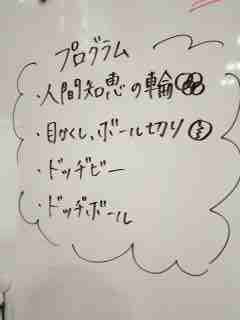 プログラム
・人間知恵の輪
・目かくし、ボール切り
・ドッヂビー
・ドッヂボール